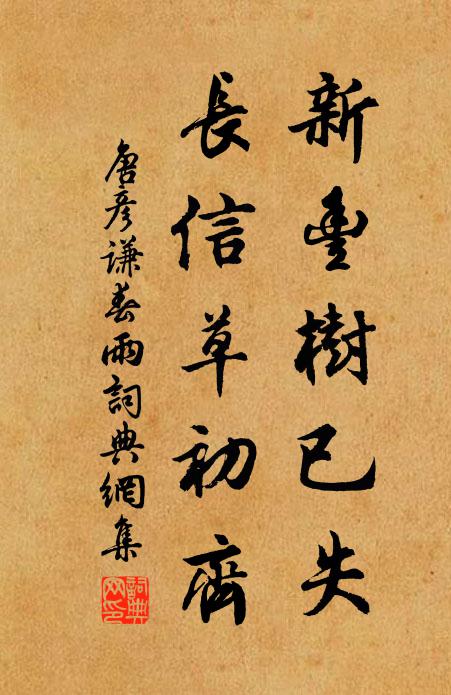 新豐樹已失
長信草初齊
唐彥謙春雨詞典網集
詞典網印